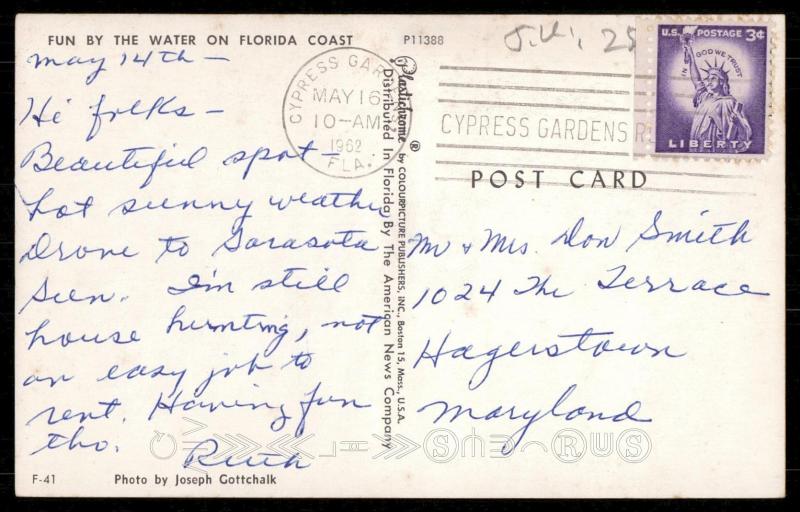 FUN BY THE WATER ON FLORIDA COAST
P11388
May 14th –
Hi folks –
Beautiful spot –
hot sunny weather
Drove to Sarasota
Sun. I'm still
house hunting, not
an easy job to
rent. Having fun
tho.
Ruth
F-41 Photo by Joseph Gottchalk
CYPRESS GARDENS
MAY 16
10-AM
1962
FLA.
Plastichrome ® by COLOURPICTURE PUBLISHERS, INC., Boston 15, Mass., U.S.A.
Distributed In Florida By The American News Company
25
U.S. POSTAGE 3¢
IN GOD WE TRUST
LIBERTY
CYPRESS GARDENS
POST CARD
Mr & Mrs. Don Smith
1024 The Terrace
Hagerstown
Maryland